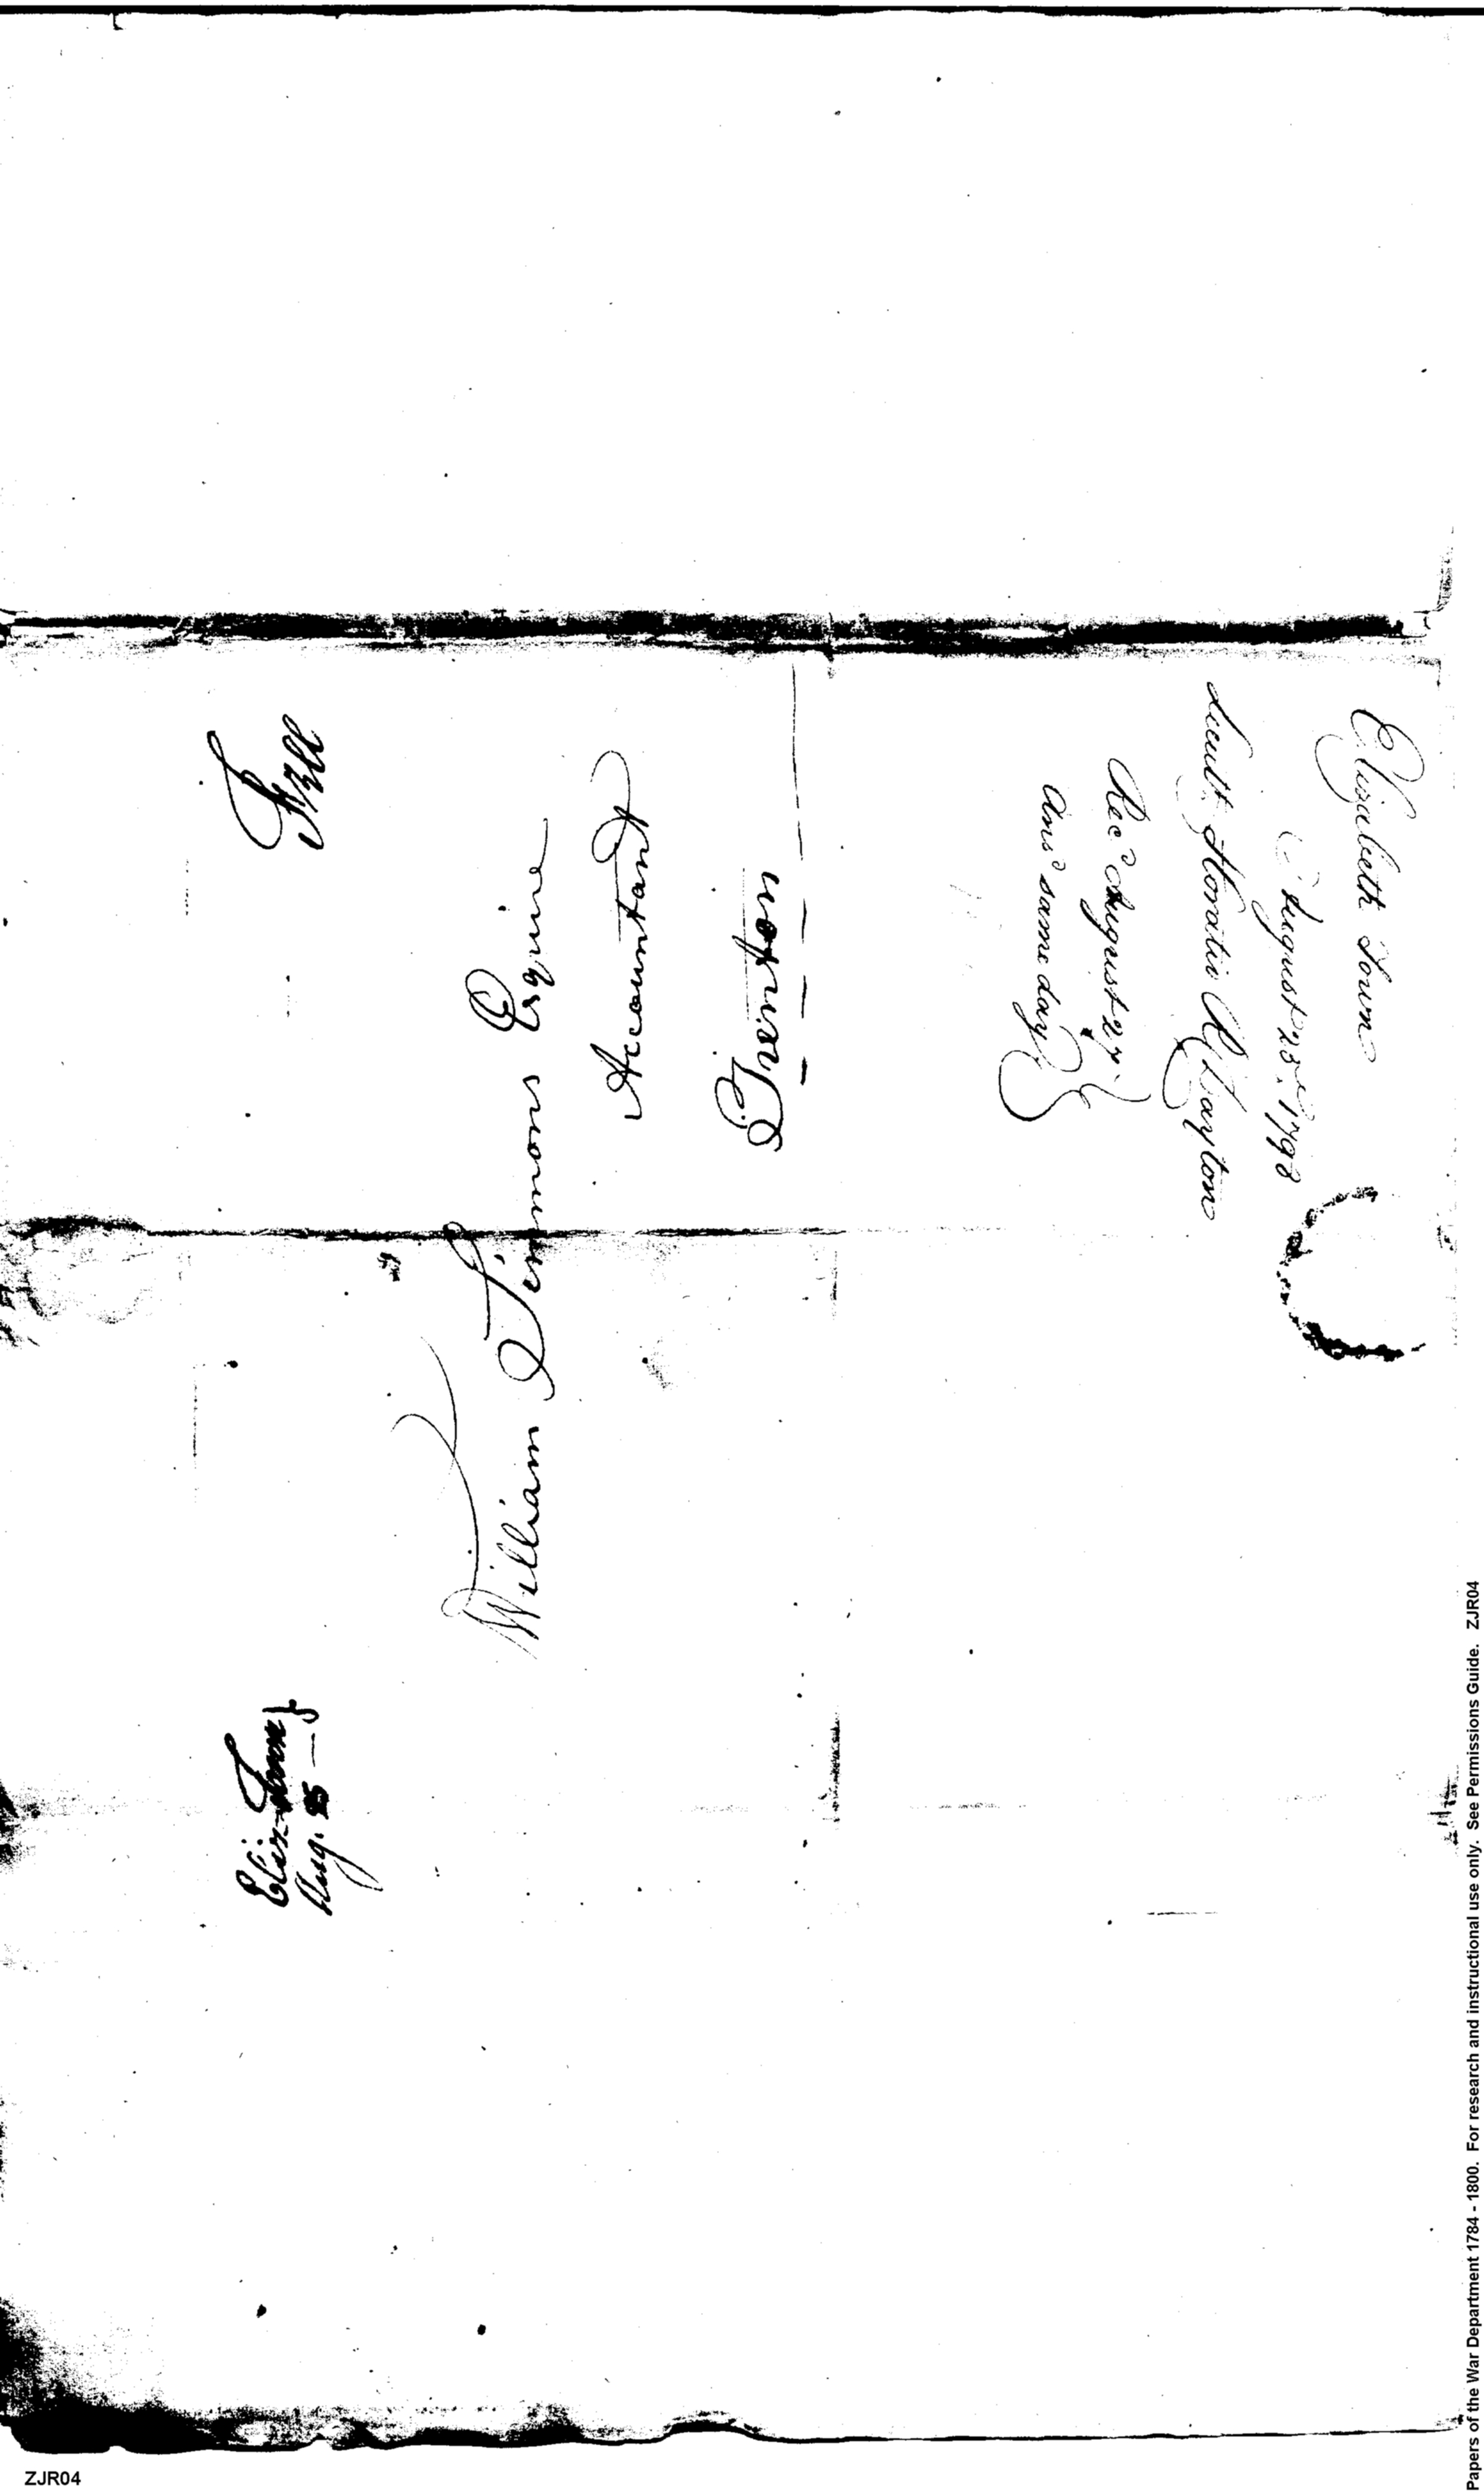 Eliz. Town
Aug. 25
Free
William Simmons Esquire
Accountant
Trenton
Elizabeth Town
August 23d. 1798
Lieutt. Horatio R Dayton
Recd August 27
Ansd same day
Papers of the War Department 1784 - 1800. For research and instructional use only. See Permissions Guide. ZJR04
ZJR04